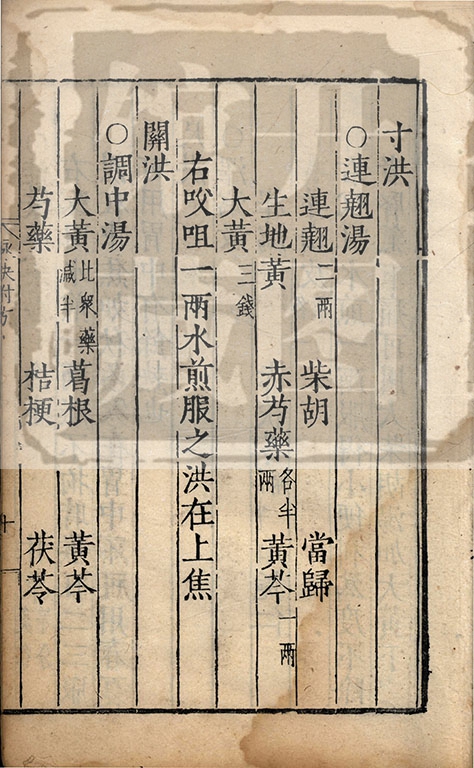 寸洪
○連翹湯
連翹二兩 柴胡 當歸
生地黃 赤芍藥各半兩 黃芩一兩
大黃三錢
右㕮咀一兩水煎服之洪在上焦
關洪
○調中湯
大黃比衆藥減半 葛根 黃芩
芍藥 桔梗 茯苓